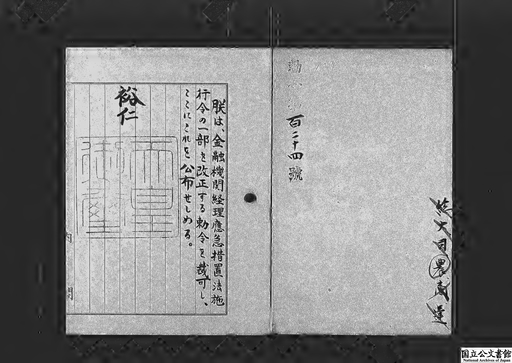 百二十四號
朕は、金融機関経理應急措置法施
行令の一部を改正する勅令を裁可し、
ここにこれを公布せしめる。
裕仁
国立公文書館
National Archives of Japan